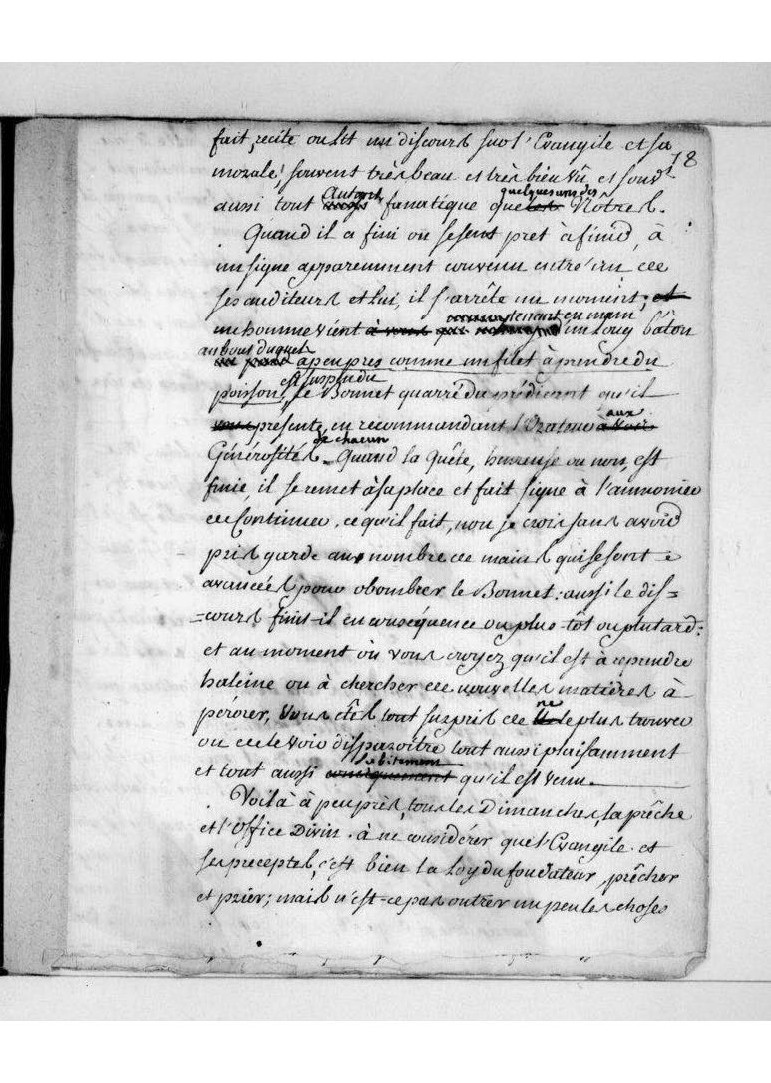 78
fait, recite ou lit un discours sur l'Evangile et sa
morale, souvent très beau et très bien vû, et souvt
aussi tout autant fanatique que quelques uns des Nôtres.
Quand il a fini ou se sent pret à finir, à
un signe apparemment convenu entre un de
ses auditeurs et lui, il s'arrête un moment; et
un homme vient à vous tenant en main un long bâton
au bout duquel apeupres comme un filet à prendre du
poisson, est suspendu le Bonnet quarré du prédicant qu'il
vous présente, en recommandant l'Orateur aux
Générosités de chacun. Quand la Quête, heureuse ou non, est
finie, il se remet à sa place et fait signe à l'aumonier
de Continuer, ce qu'il fait, non je crois sans avoir
pris garde au nombre de mains qui se sont
avancées pour obombrer le Bonnet: aussi le dis=
=cours finit-il en conséquence ou plus-tôt ou plutard:
et au moment où vous croyez qu'il est à reprendre
haleine ou à chercher de nouvelles matières à
pérorer, Vous êtes tout surpris de ne le plus trouver
ou de le voir disparoître tout aussi plaisamment
et tout aussi subitement qu'il est venu.
Voilà à peu près, tous les Dimanches, la prêche
et l'Office Divin. à ne considérer que l'Evangile et
ses preceptes, c'est bien la Loy du fondateur, prêcher
et prier; mais n'est-ce pas outrer un peu les choses